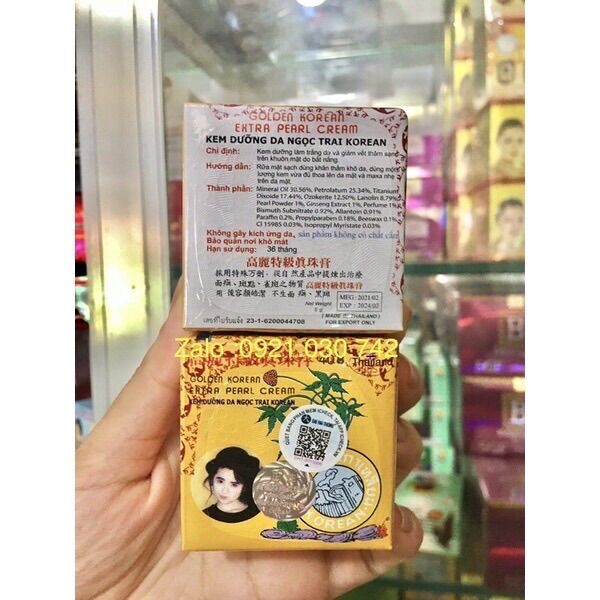 GOLDEN KOREAN
EXTRA PEARL CREAM
KEM DƯỠNG DA NGỌC TRAI KOREAN
Chỉ định: Kem dưỡng làm trắng da và giảm vết thâm sạm
trên khuôn mặt do bắt nắng.
Hướng dẫn: Rửa mặt sạch dùng khăn thấm khô da, dùng một
lượng kem vừa đủ thoa lên da mặt và maxa nhẹ
trên da mặt.
Thành phần: Mineral Oil 30.56%, Petrolatum 25.34%, Titanium
Dioxide 17.44% Ozokerite 12.50% Lanolin 8.79%
Pearl Powder 1% Ginseng Extract 1% Perfume 1%
Bismuth Subnitrate 0.92% Allantoin 0.91%
Paraffin 0.2% Propylparaben 0.18% Beeswax 0.1%
CI 15985 0.03% Isopropyl Myristate 0.03%
Không gây kích ứng da, sản phẩm không có chất cấm
Bảo quản nơi khô mát
Hạn sử dụng: 36 tháng
高麗特級眞珠膏
採用特殊万劑，從自然產品中提煉出治療
面瘡、斑點、雀斑之物質高麗特級眞珠膏
用後容顏皓潔不生面瘡、黑斑
Net Weight
5 g
MFG : 2021/02
EXP : 2024/02
[ MADE IN THAILAND ]
FOR EXPORT ONLY
เลขที่ใบรับแจ้ง 23-1-6200044708
Zalo 0921.030.742
Thailand
GOLDEN KOREAN
EXTRA PEARL CREAM
KEM DƯỠNG DA NGỌC TRAI KOREAN
QUÉT BẰNG PHẦN MỀM ICHECK
KOREAN